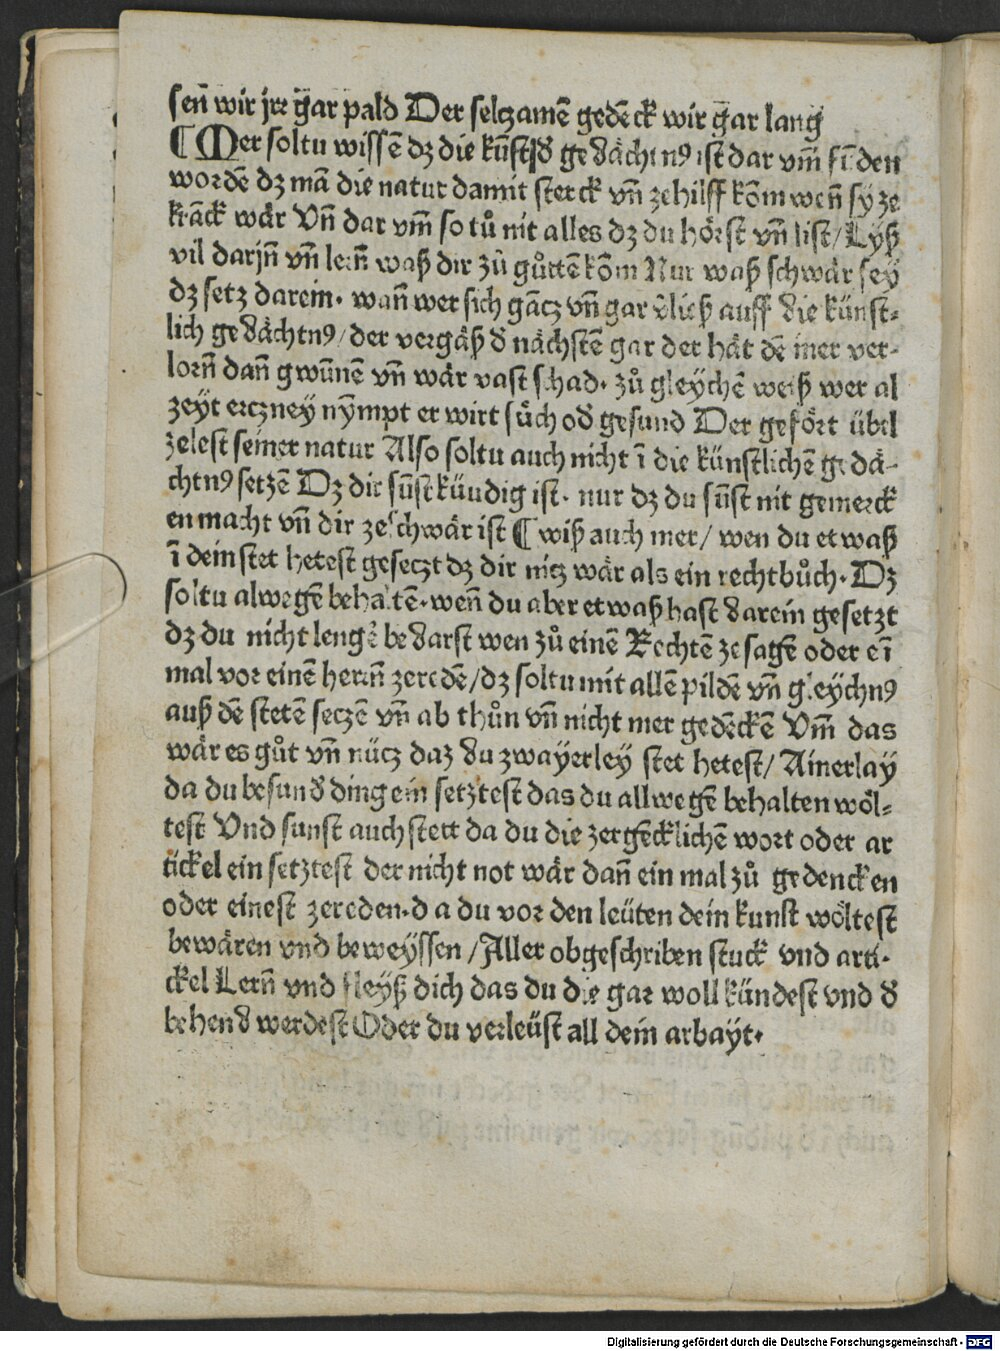 sen̄ wir jrr gar pald Der selczamē gedēck wir gar lang
¶ Mer soltu wissē dz die kūstld gedächtn9 ist dar vm̄ fūden
wordē dz mā die natur damit sterck vn̄ zehilff kōm wen̄ sy ze
krāck wär Vn̄ dar vm̄ so tů nit alles dz du hörst vn̄ list/ Lyß
vil darjn̄ vn̄ lern̄ waß dir zů gůttē kōm Nur waß schwär sey
dz setz darein. wan̄ wer sich gācz vn̄ gar v̄ließ auff die künst⸗
lich gedächtn9/ der vergäß d nächstē gar der hät dē mer ver⸗
lorn̄ dan̄ gwūnē vn̄ wär vast schad. zů gleychē weiß wer al
zeyt erczney nȳmpt er wirt sůch od gesund Der geföꝛt übel
zelest seiner natur Also soltu auch nicht ī die künstlichē gedä⸗
chtn9 setzē Dz dir sūst küudig ist. nur dz du sūst nit gemerck
en macht vn̄ dir zeschwär ist ¶ wiß auch mer/ wen du etwaß
ī dein stet hetest gesetzt dz dir nitz wär als ein rechtbůch. Dz
soltu alwegē behaltē. wen̄ du aber etwaß hast darein gesetzt
dz du nicht lengē bedarst wen zů einē Rechtē ze sagē oder eī
mal vor einē herrn̄ zeredē/ dz soltu mit allē pildē vn̄ gleychn9
auß dē stetē seczē vn̄ ab thůn vn̄ nicht mer gedēckē Vm̄ das
wär es gůt vn̄ nücz daz du zwayerley stet hetest/ Ainerlay
da du besund ding ein setztest das du allwegē behalten wöl⸗
test Vnd sunst auch stett da du die zergēcklichē wort oder ar
tickel ein setztest der nicht not wär dan̄ ein mal zů gedencken
oder einest zereden. d a du vor den leüten dein kunst wöltest
bewären vnd beweyssen / Aller obgeschriben stuck vnd arti⸗
ckel Lern̄ vnd fleyß dich das du die gar woll kündest vnd d
behend werdest Oder du verleüst all dein arbayt.
Digitalisierung gefördert durch die Deutsche Forschungsgemeinschaft - DFG